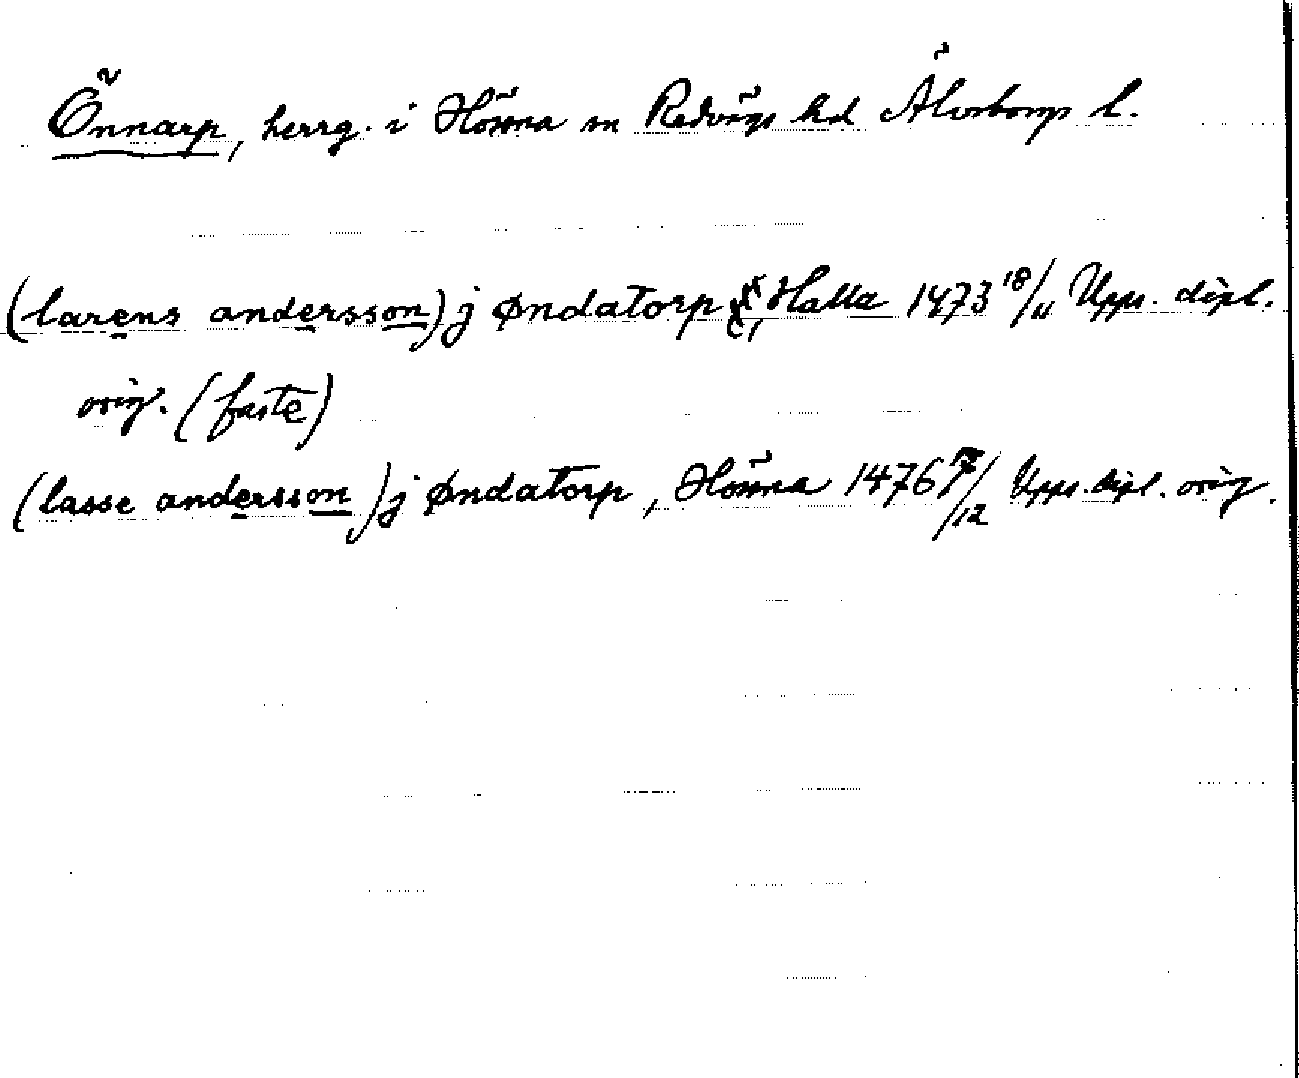 Önnarp, herrg. i Hössna sn Redvägs hd Älvsborgs l.
(larens andersson) j øndatorp, Halla 1473 18/11 Upps. dipl.
orig. (faste)
(lasse andersson) j øndatorp, Hössna 1476 /12 Upps. dipl. orig.